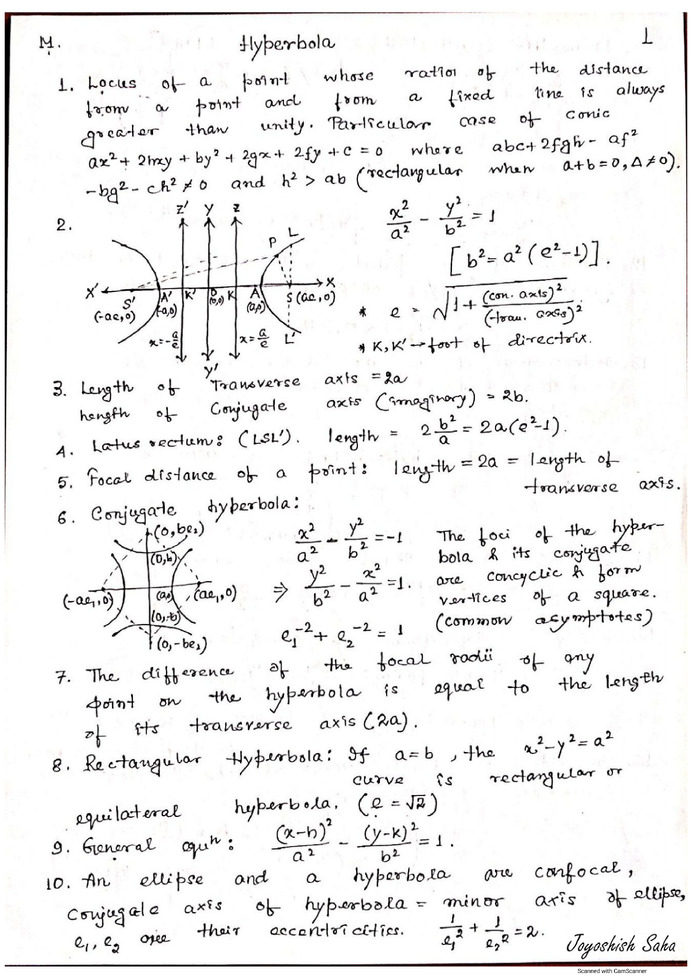 M. Hyperbola 1
1. Locus of a point whose ratio of the distance
from a point and from a fixed line is always
greater than unity. Particular case of conic
ax² + 2hxy + by² + 2gx + 2fy + c = 0 where abc + 2fgh - af²
-bg² - ch² ≠ 0 and h² > ab (rectangular when a+b=0, Δ≠0).
2. x²/a² - y²/b² = 1
[b² = a²(e²-1)].
* e = √(1 + (con. axis)²/(tran. axis)²)
* K, K' → foot of directrix.
Z' Y Z
P L
X' S' A' K' O K A S (ae,0) X
(-ae,0) (-a,0) (0,0) (a,0)
x=-a/e x=a/e L'
Y'
3. Length of Transverse axis = 2a
Length of Conjugate axis (imaginary) = 2b.
4. Latus rectum: (LSL'). length = 2b²/a = 2a(e²-1).
5. Focal distance of a point: length = 2a = length of
transverse axis.
6. Conjugate hyperbola:
(0, be₂)
(0,b)
(-ae₁,0) (a,0) (ae₁,0)
(0,-b)
(0,-be₂)
x²/a² - y²/b² = -1
⇒ y²/b² - x²/a² = 1.
e₁⁻² + e₂⁻² = 1
The foci of the hyper-
bola & its conjugate
are concyclic & form
vertices of a square.
(common asymptotes)
7. The difference of the focal radii of any
point on the hyperbola is equal to the length
of its transverse axis (2a).
8. Rectangular Hyperbola: If a=b, the x²-y²=a²
curve is rectangular or
equilateral hyperbola. (e = √2)
9. General eqnʰ: (x-h)²/a² - (y-k)²/b² = 1.
10. An ellipse and a hyperbola are confocal,
conjugate axis of hyperbola = minor axis of ellipse,
e₁, e₂ are their eccentricities. 1/e₁² + 1/e₂² = 2.
Joyoshish Saha
Scanned with CamScanner